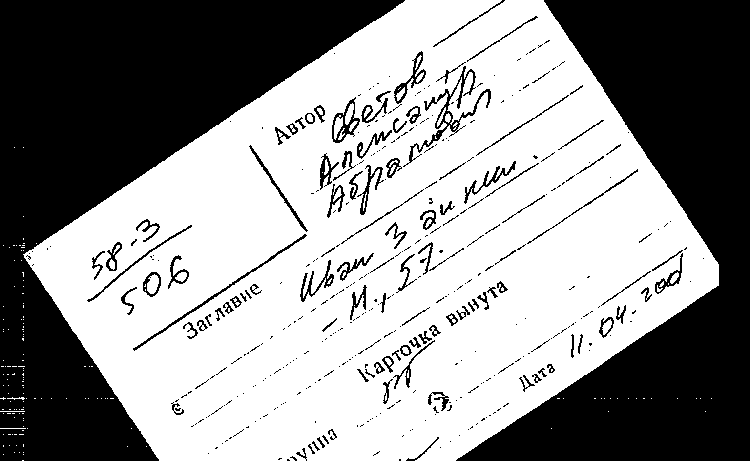 58-3
506
Автор Светов
Александр
Абрамович
Заглавие Иван Зайкин.
- М., 57.
Карточка вынута
Дата 11.04.2001